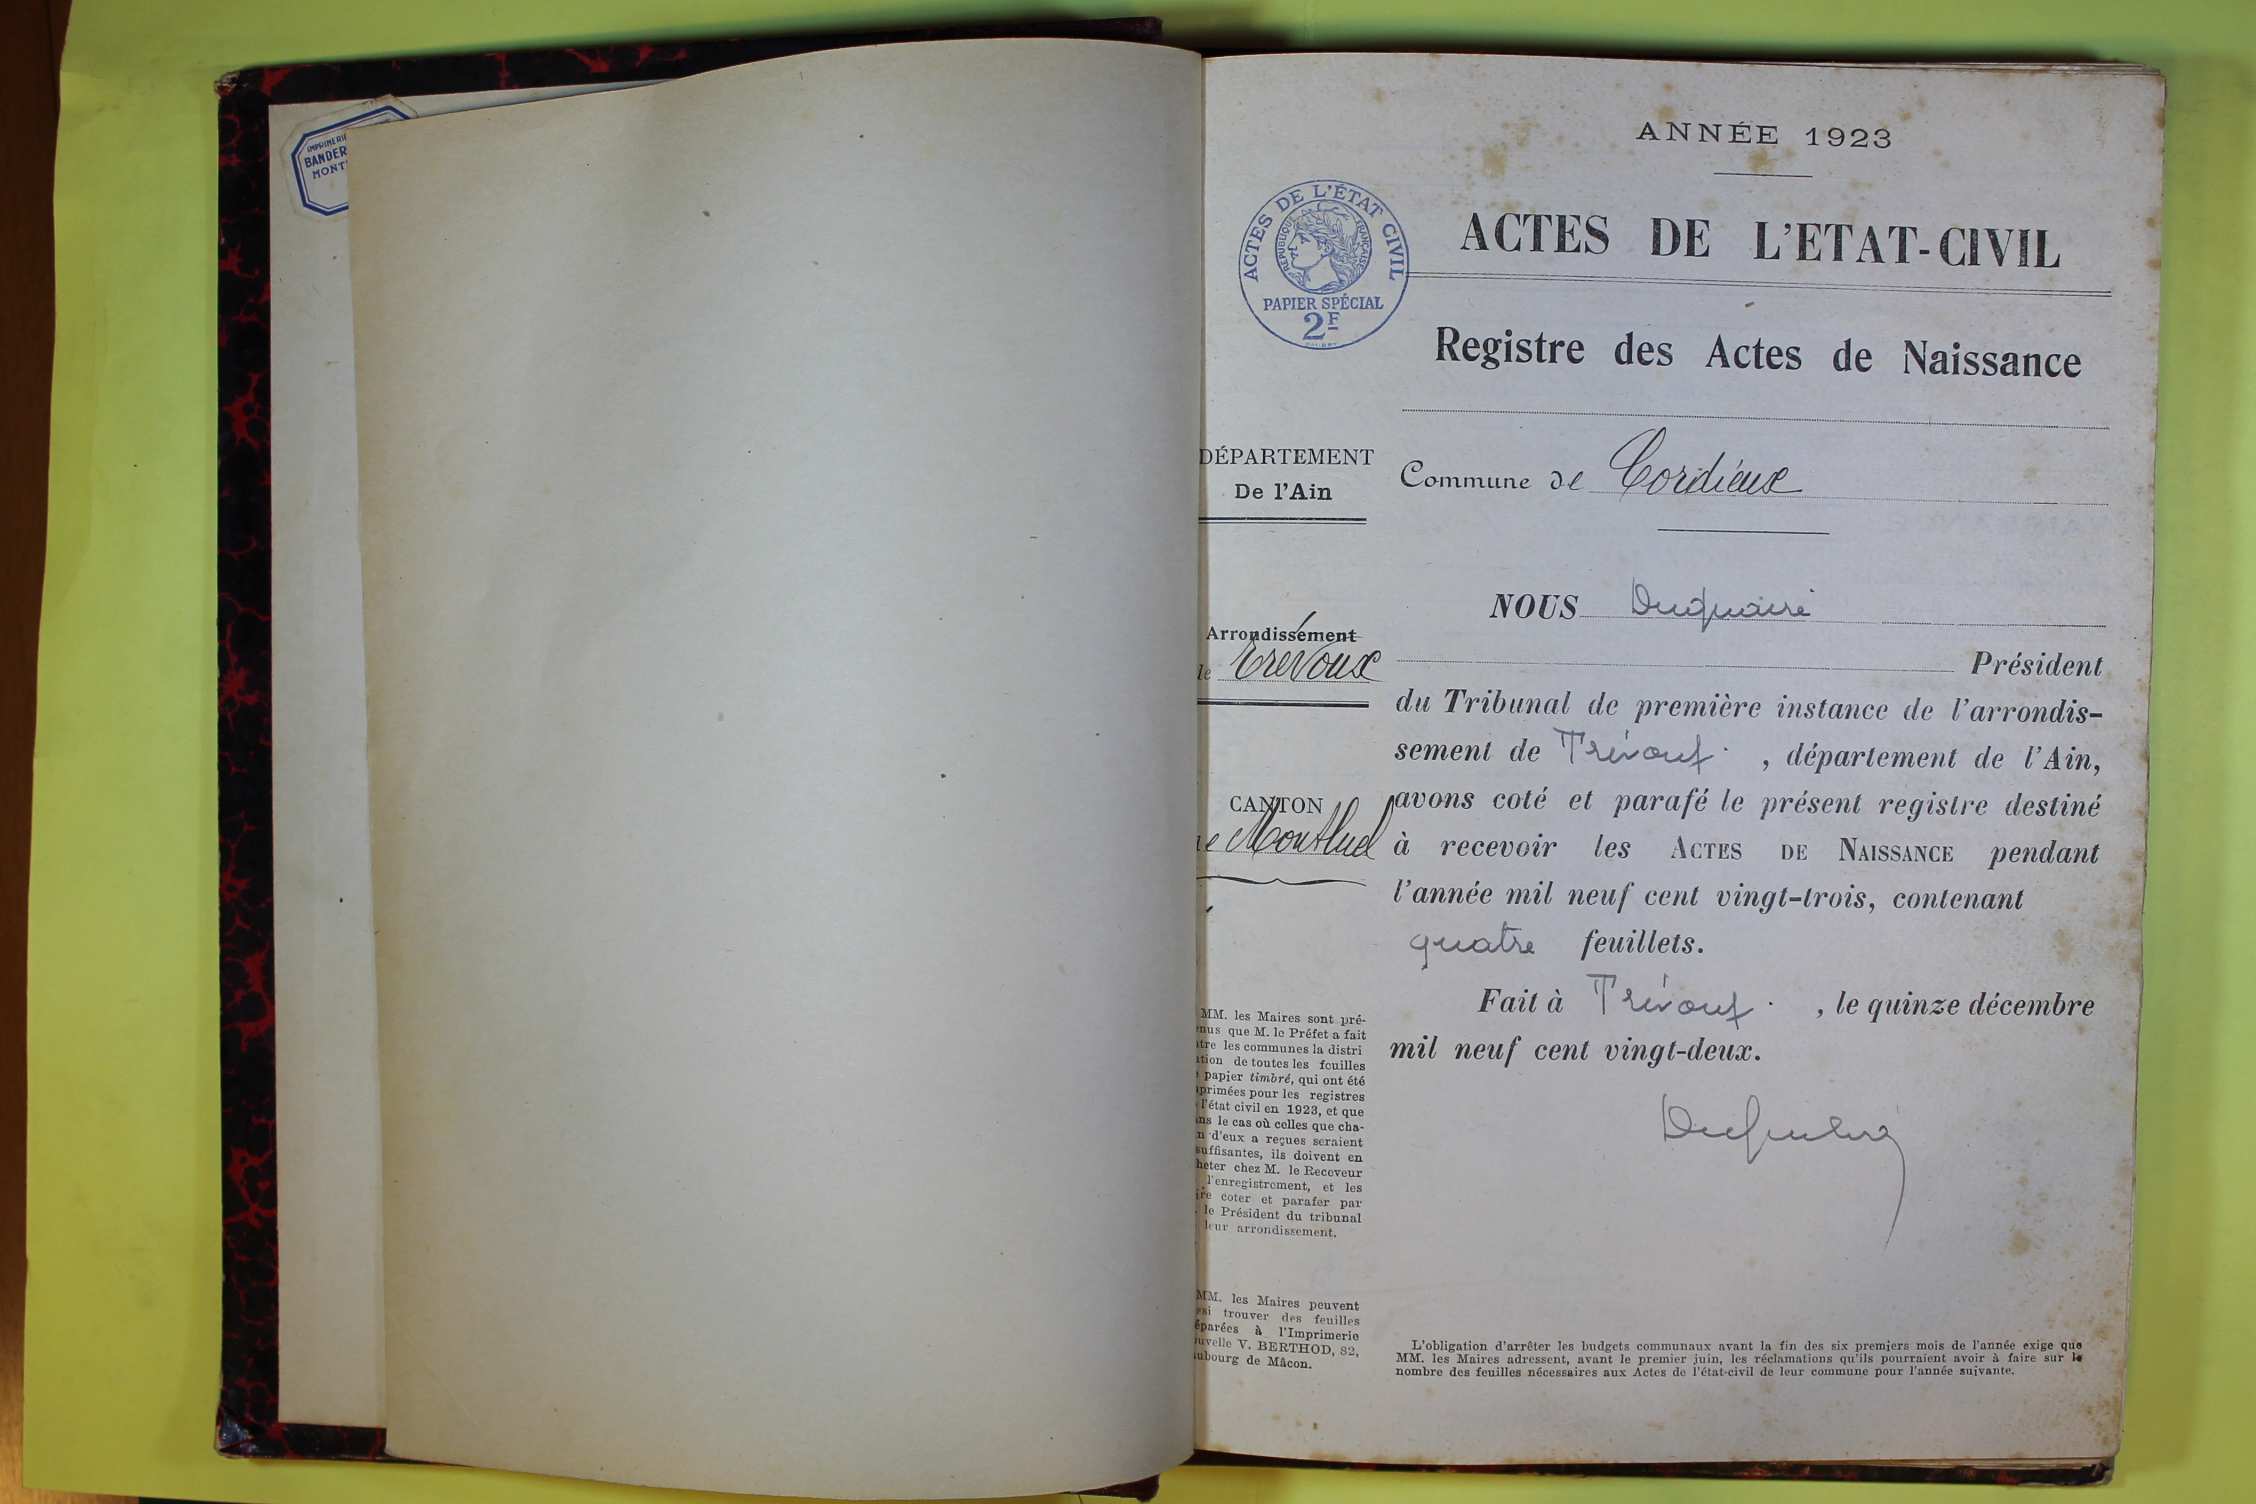 IMPRIMERIE
BANDER
MONT
ANNÉE 1923
ACTES DE L'ÉTAT CIVIL
RÉPUBLIQUE FRANÇAISE
PAPIER SPÉCIAL
2F
ACTES DE L'ETAT-CIVIL
Registre des Actes de Naissance
DÉPARTEMENT
De l'Ain
Arrondissement
de Trévoux
CANTON
de Montluel
MM. les Maires sont pré-
nus que M. le Préfet a fait
tre les communes la distri
tion de toutes les feuilles
papier timbré, qui ont été
primées pour les registres
l'état civil en 1923, et que
ns le cas où celles que cha-
n d'eux a reçues seraient
suffisantes, ils doivent en
heter chez M. le Receveur
l'enregistrement, et les
ire coter et parafer par
le Président du tribunal
leur arrondissement.
MM. les Maires peuvent
si trouver des feuilles
éparées à l'Imprimerie
uvelle V. BERTHOD, 82,
ubourg de Mâcon.
Commune de Cordieux
NOUS Duquaire
Président
du Tribunal de première instance de l'arrondis-
sement de Trévoux, département de l'Ain,
avons coté et parafé le présent registre destiné
à recevoir les ACTES DE NAISSANCE pendant
l'année mil neuf cent vingt-trois, contenant
quatre feuillets.
Fait à Trévoux, le quinze décembre
mil neuf cent vingt-deux.
L'obligation d'arrêter les budgets communaux avant la fin des six premiers mois de l'année exige que
MM. les Maires adressent, avant le premier juin, les réclamations qu'ils pourraient avoir à faire sur le
nombre des feuilles nécessaires aux Actes de l'état-civil de leur commune pour l'année suivante.